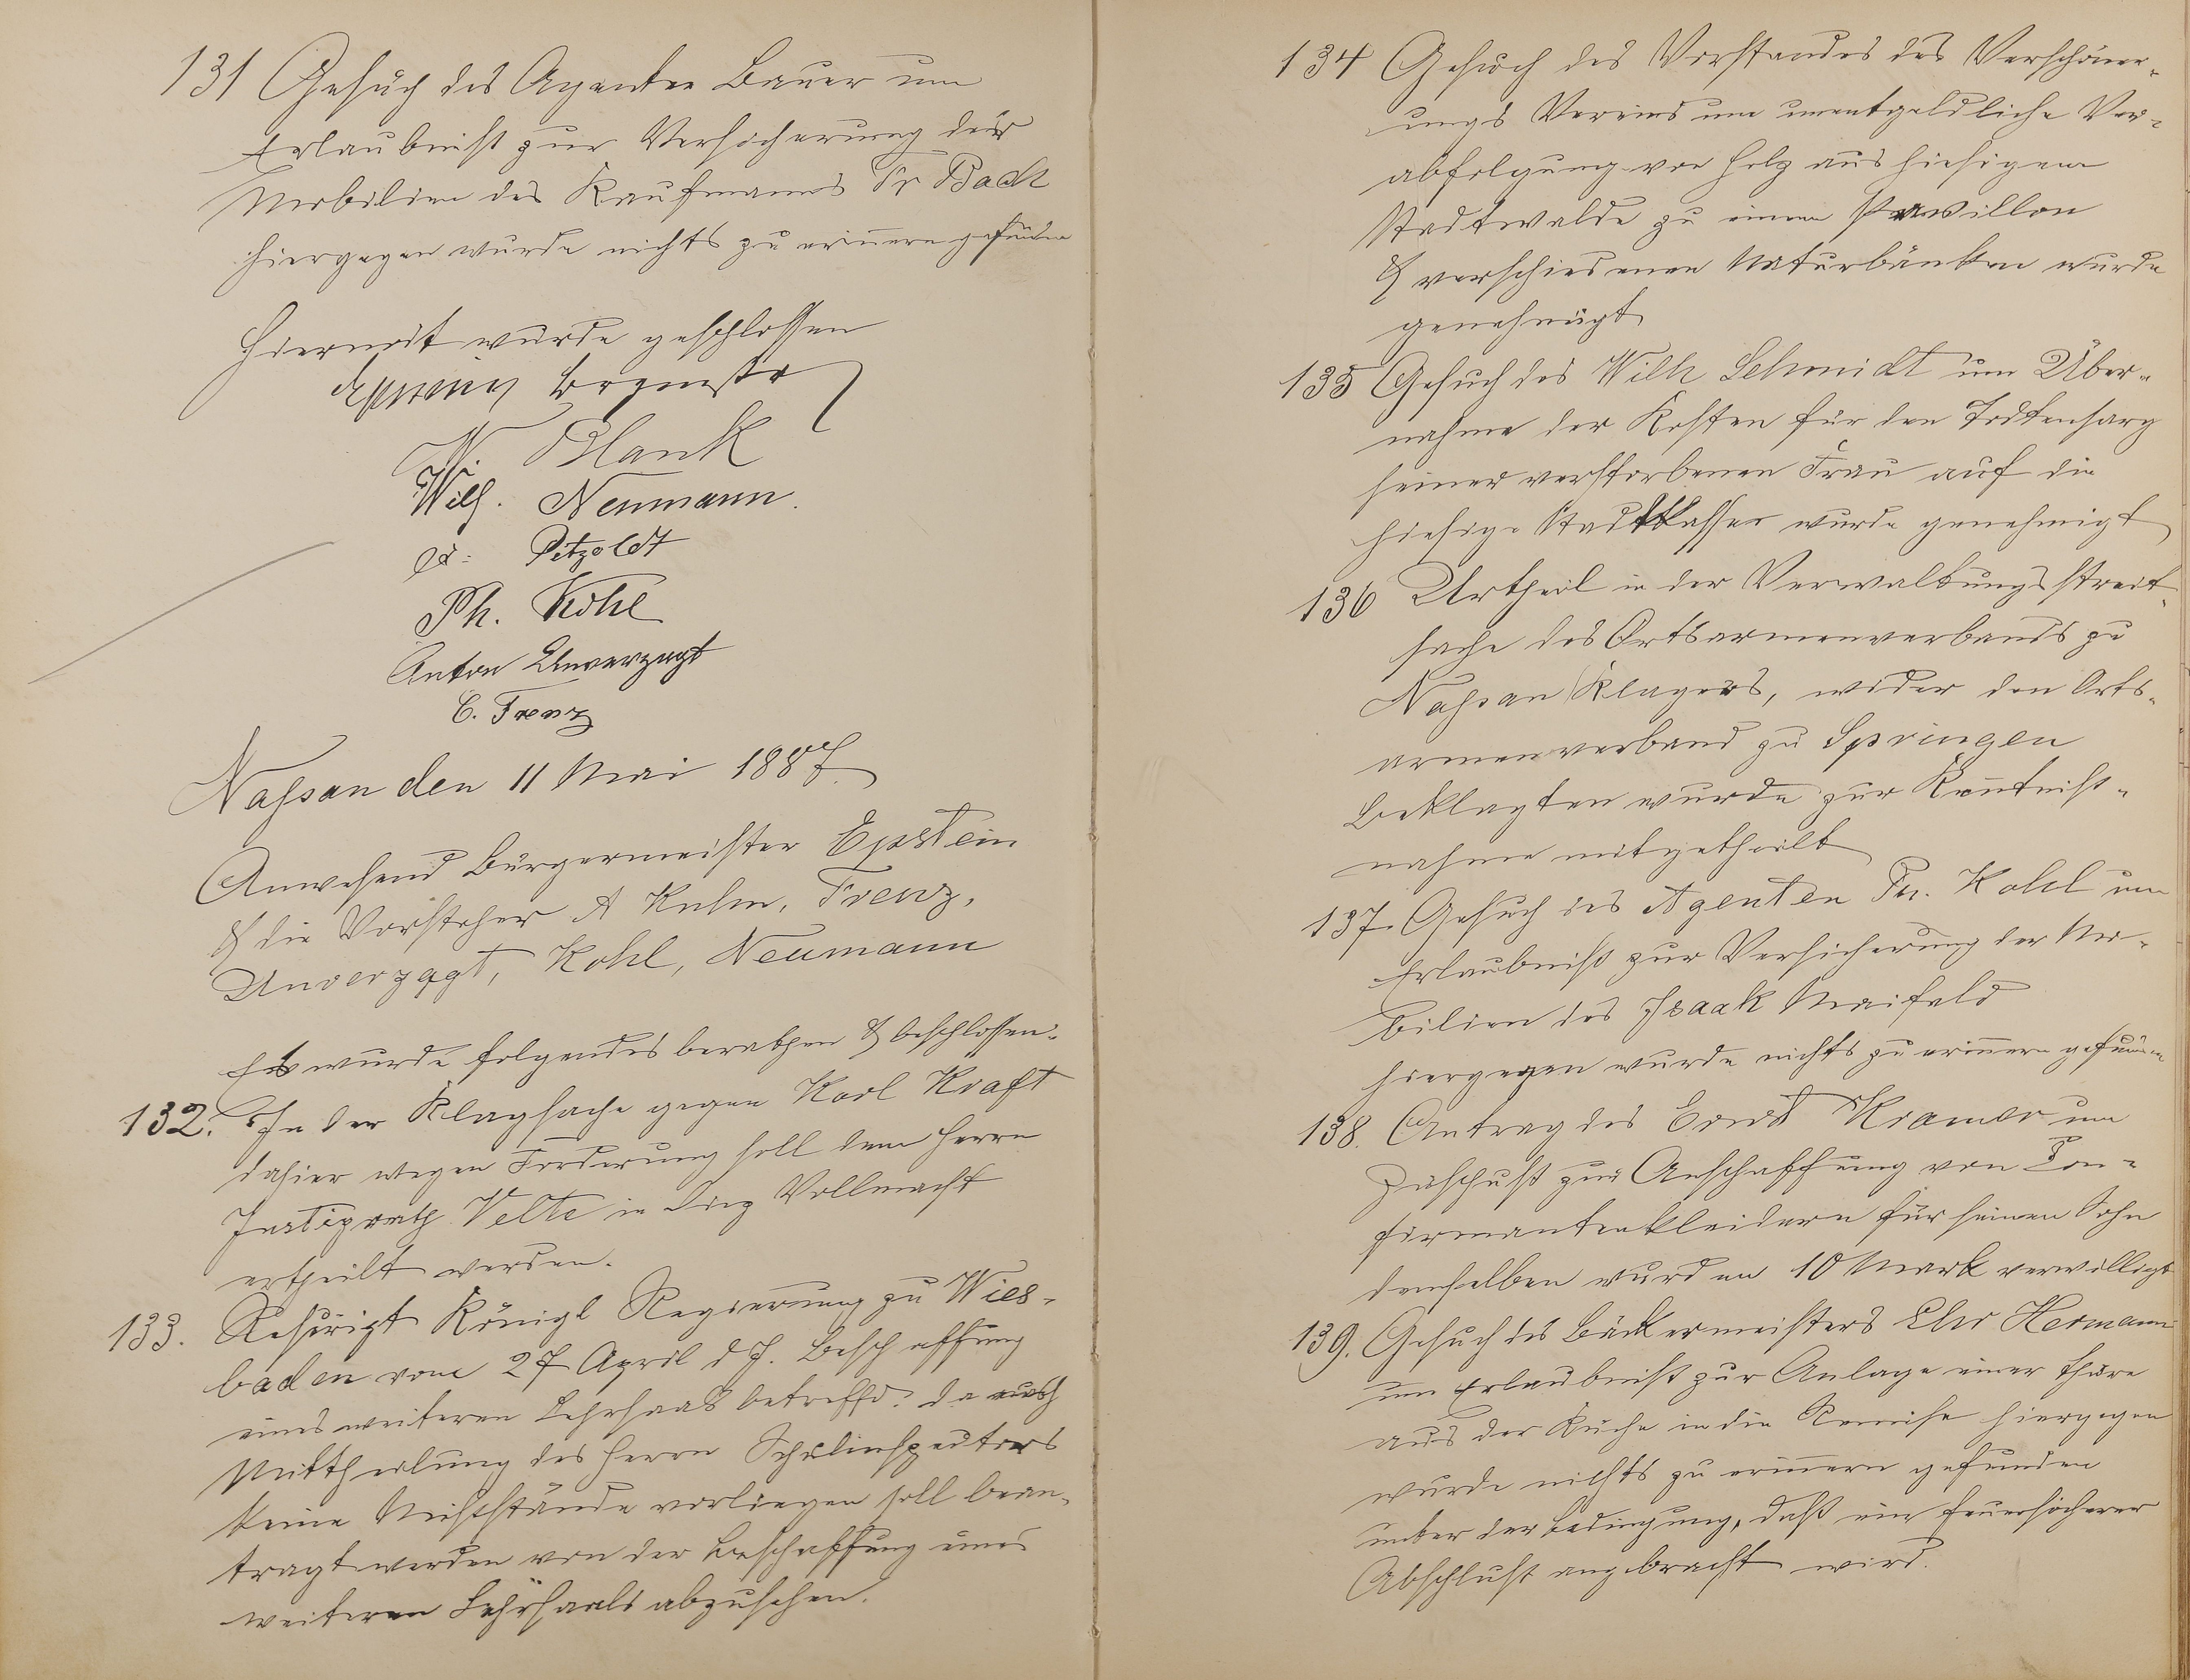 131 Gesuch des Agenten Bauer um
Erlaubnist zur Versicherung der
Mobilien des Kaufmanns Fr Bach
hiergegen wurde nichts zu erinnern gefunden
Hiermit wurde geschlossen
W. Blank
Wilh. Neumann.
Petzoldt
Ph. Kohl
Anton Unverzagt
C. Frenz
Nassau den 11 Mai 1887.
Anwesend Bürgermeister Epstein
& die Vorsteher A Kuhn, Frenz,
Unverzagt, Kohl, Neumann
Es wurde folgendes berathen & beschlossen:
132. In der Klagsache gegen Karl Kraft
dahier wegen Forderung soll dem Herrn
Justizrath Velte in Diez Vollmacht
ertheilt werden.
133. Rescript Königl Regierung zu Wies-
baden vom 27 April d J. Beschaffung
eines weiteren Lehrsaals betreffd. da nach
Mittheilung des Herrn Schulinspectors
keine Misstände vorliegen soll bean-
tragt werden von der Beschaffung eines
weiteren Lehrsaals abzusehen.
134 Gesuch des Vorstandes des Verschöner-
ungs Vereins um unentgeldliche Ver-
abfolgung von Holz aus hiesigem
Stadtwalde zu einem Pavillon
& verschiedenen Naturbänken wurde
genehmigt
135 Gesuch des Wilh Schmidt um Über-
nahme der Kosten für den Todtensarg
seiner verstorbenen Frau auf die
hiesige Stadtkasse wurde genehmigt
136 Urtheil in der Verwaltungsstreit-
sache des Ortsarmenverbands zu
Nassau Klägers, wider den Orts-
armenverband zu Springen
Beklagten wurde zur Kenntnist-
nahme mitgetheilt
137. Gesuch des Agenten Ph. Kohl um
Erlaubniß zur Versicherung der Mo-
bilien des Isaak Maifeld
hiergegen wurde nichts zu erinnern gefunden
138. Antrag des Ernst Kramer um
Zuschuß zur Anschaffung von Con-
firmantenkleidern für seinen Sohn
demselben wurden 10 Mark verwilligt
139. Gesuch des Bäckermeisters Chr Hermann
um Erlaubniß zur Anlage einer Thüre
aus der Küche in die Remise hiergegen
wurde nichts zu erinnern gefunden
unter der Bedingung, daß ein feuersicherer
Abschluß angebracht wird.